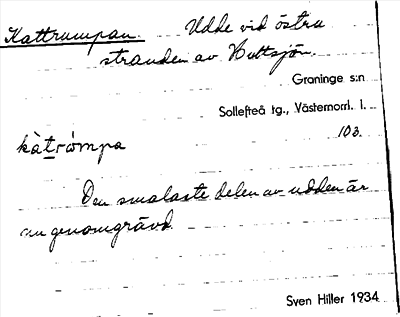 Kattrumpan. Udde vid östra
stranden av Bottsjön.
Graninge s:n
Sollefteå tg., Västernorrl. l.
103.
kàtrómpa
Den smalaste delen av udden är
nu genomgrävd.
Sven Hiller 1934